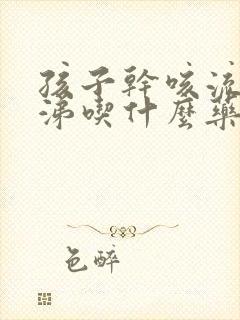 孩子幹咳流
涕喫什麼藥
色醉